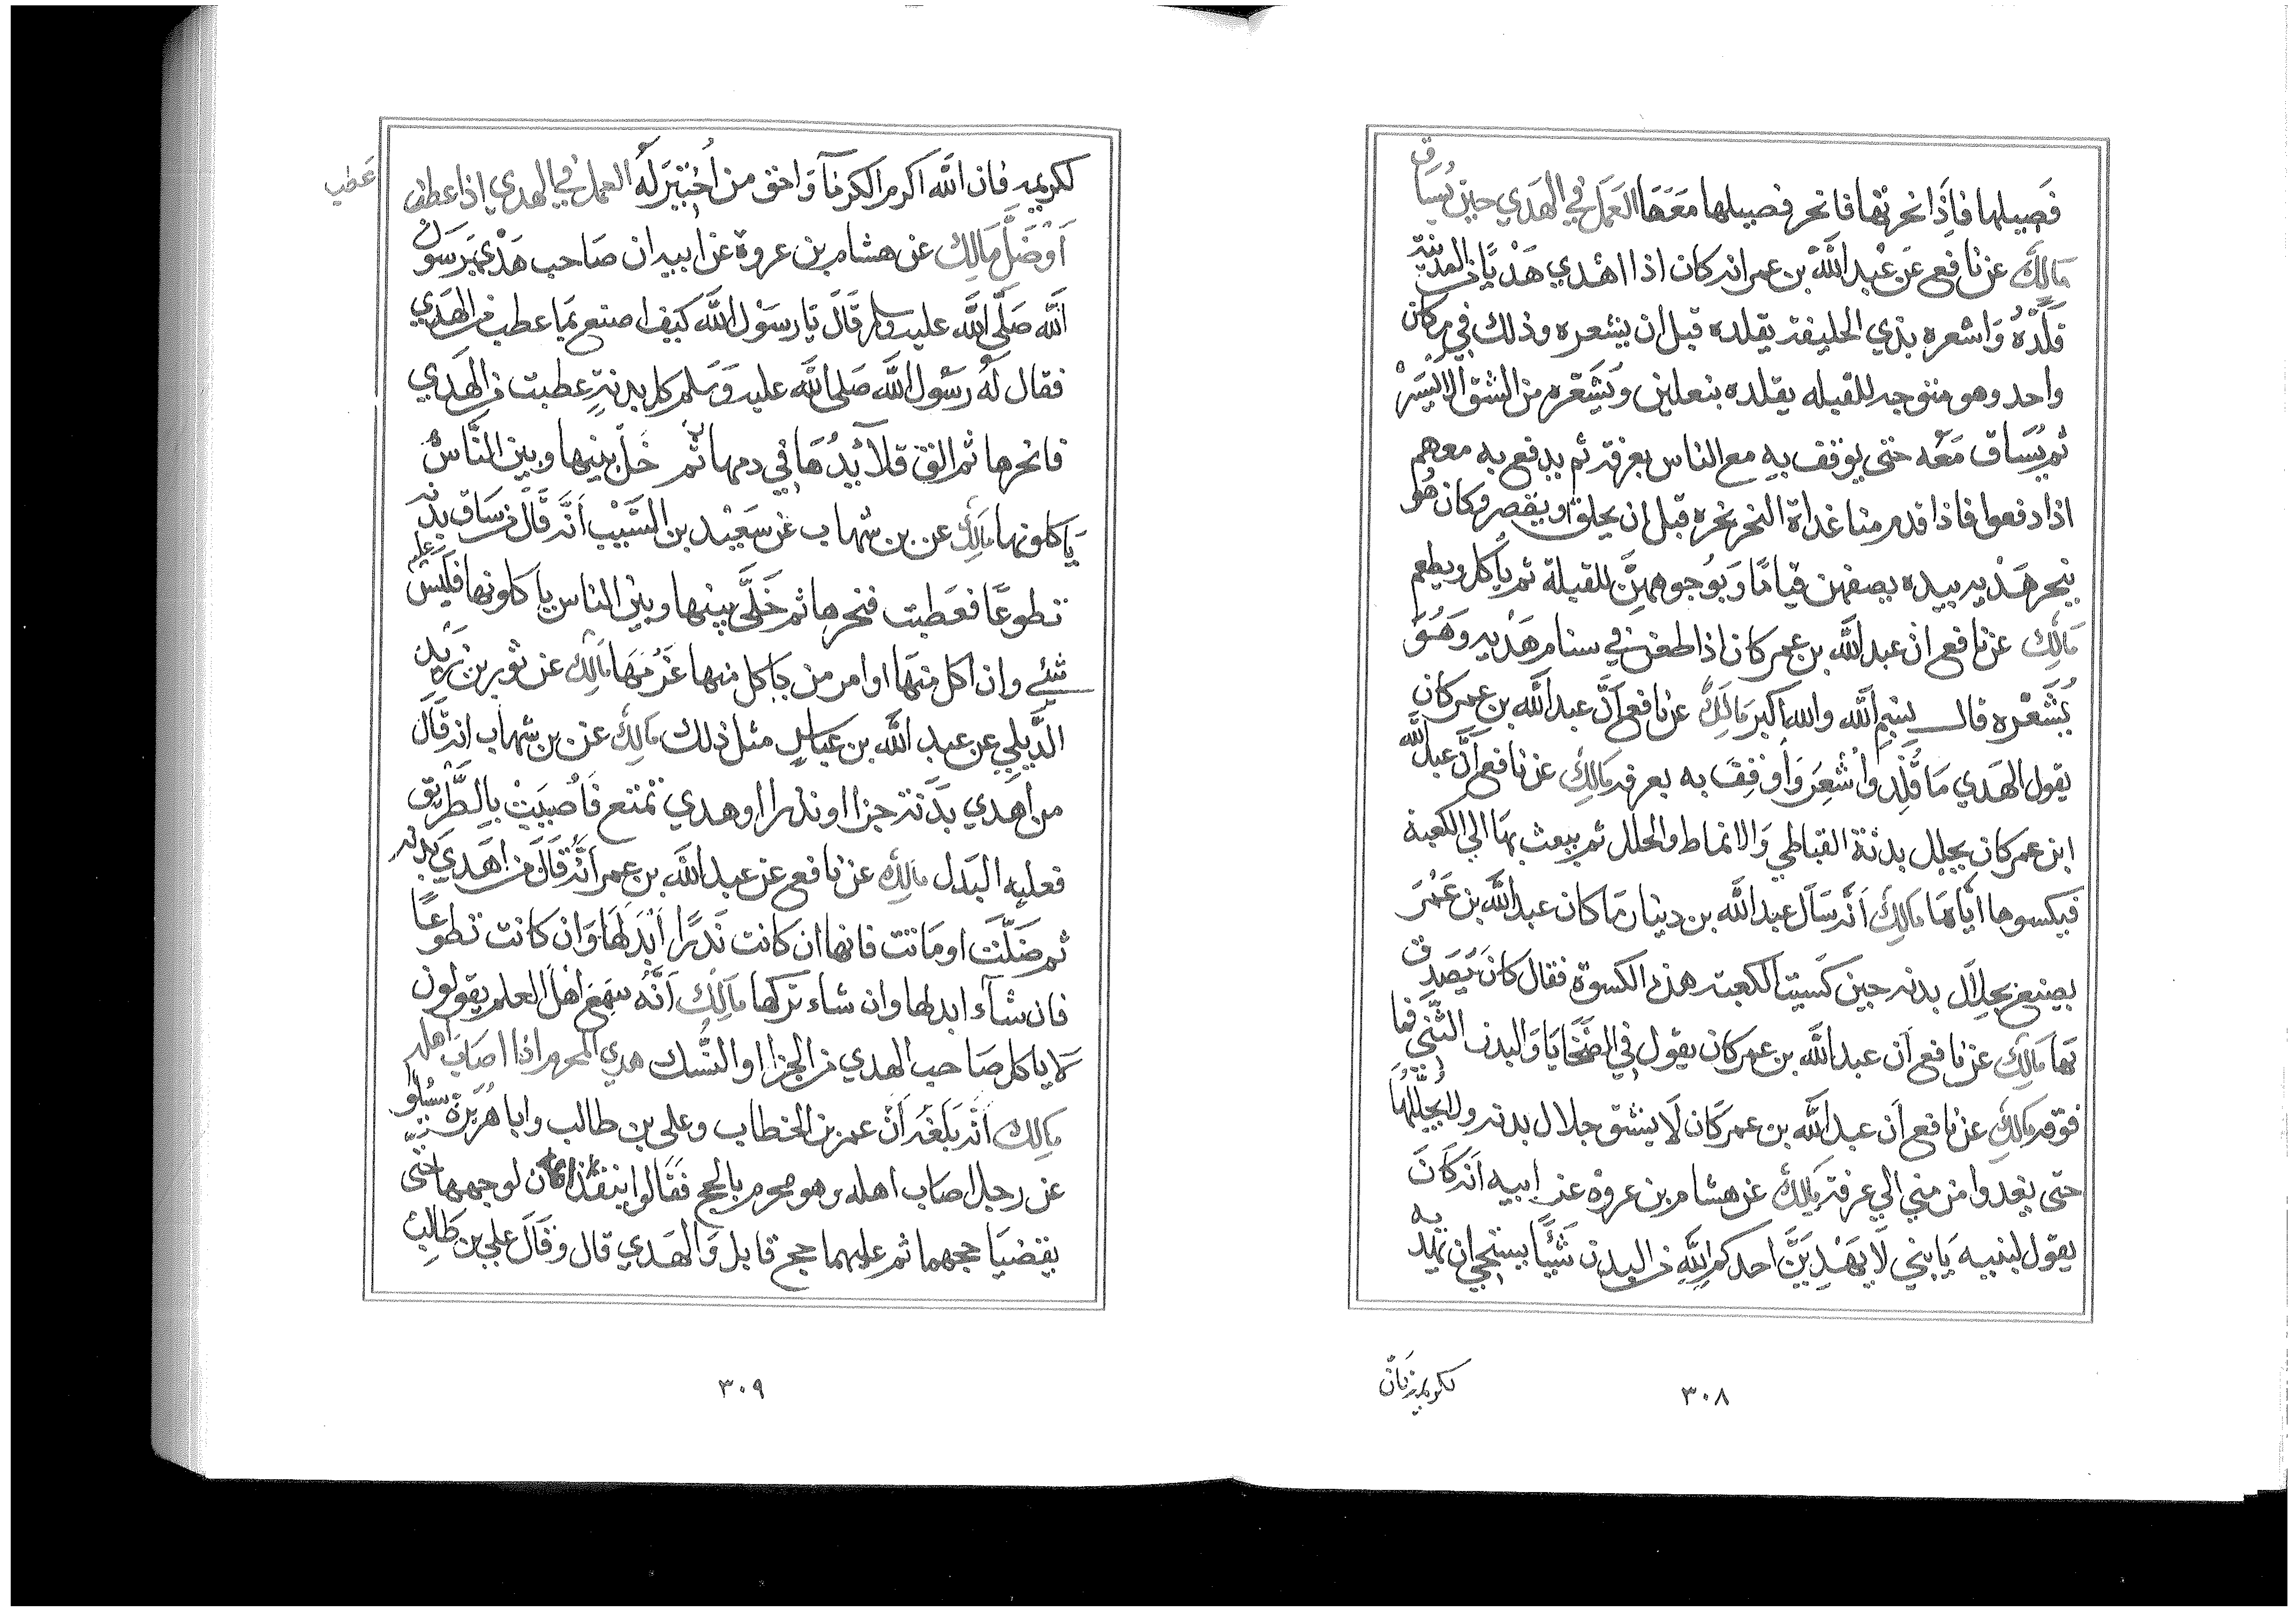 فَصِيلها فاِذَا نحرتها فانحر فصيلها مَعَهَا العَمَل في الهَدي حين يُسَاق
مَالِكْ عن نافع عَن عَبْد اللَّه بن عمر انه كان اذا اهْدي هَدْيًا من المدينة
قَلَّدَهُ وَاشعره بذي الحليفة يقلده قبل ان يشعره وذلك في مكان
واحد وهو متوجه للقبله يقلده بنعلين وَيُشعّره من الشق الايْسَرْ
ثم يُسَاق مَعَه حتى يوقف به مع الناس بعرفة ثم يدفع به معهم
اذا دفعوا فاذا قدم منا غداة النحر نحره قبل ان يحلق او يقصر وكان هُو
ينحر هَدْيه بيده يصفهن قيامًا وَيوُجوههنّ للقبلة ثم يأكل ويطعم
مَالِك عن نافع ان عبد اللَّه بن عمر كان اذا طعن في سنام هَدْيه وَهُوَ
يُشْعْره قال بِسْمِ اللَّه والله اكبر مَالِكْ عن نافع أنَّ عبد اللَّه بن عمر كان
يقول الهَدي مَا قُلِّد وأُشْعِرَ وَأوقِفَ به بعرفه مَالِكْ عن نافع أنَّ عبد اللَّه
ابن عمر كان يجلل بدنة القباطي وَالانماط والحلل ثم يبعث بهَا الي الكعبة
فيكسوها اياهَا مَالِكْ أنّه سَأل عبد اللَّه بن دينار مَا كان عبد اللَّه بن عُمَرَ
يصنع بجلال بدنه حين كُسيت الكعبة هذه الكسوة فقال كانَ يَتَصَدق
بها مَالِكْ عن نافع أن عبد اللَّه بن عمر كان يقول في الضَّحَايَا وَالبدن الثَّني فما
فوقه مَالِكْ عن نافع أن عبد اللَّه بن عمر كان لَا يشق جلال بدنه ولا يُجَلِّلُهَا
حتى يغدوا من مني الي عرفة مَالِكْ عن هشام بن عروة عن ابيه أنه كَانَ
يقول لبنيه يَا بني لَا يَهْدِيَنَّ احدكم للَّهِ من البدن شَيْئًا يستحيي ان يهديه
لكريمه فان
٣٠٨
لكريمه فان اللَّه اكرم الكرمآ وَاحق من اُخْتِيرَ لَهُ العمل في الهدي اذا عطف
عَطِب
اَوْ ضَلَّ مَالِك عن هشام بن عروة عن ابيه ان صَاحب هَدْي رَسوُل
اللَّه صَلَّى اللَّه عليه وسلم قَالَ يَا رسَوُل اللَّه كيَف اصنع بمَا عطب من الهَدي
فقال لَهُ رَسُول اللَّه صَلى اللَّه عليه وَسَلم كل بدنةٍ عطبت من الهَدي
فانحرها ثم الق قلآئِدُهَا في دمها ثُم خَلِّ بينها وبين النَّاسْ
يَاكلونها مَالِكْ عن بن شهاب عَن سَعِيْد بن المسَيَّبْ أنَّه قَالَ من سَاق بدنة
تطوعًا فعَطبت فنحرها ثم خَلَّى بينها وبين الناس ياكلونها فليَسَ عليه
شيْئ وان اكل منهَا او امر من ياكل منها غَرُمَهَا مَالِكْ عن ثور بن زَيْد
الدِّيلي عن عبد اللَّه بن عباسٍ مثل ذلك مَالِكْ عن بن شهاب انه قَالَ
من اَهدي بدَنة جزا او نذرا او هدي تمتع فَأُصيبَتْ بالطَّريق
فعليه البَدل مَالِكْ عن نافع عن عبد اللَّه بن عمر أنَّهُ قَالَ من اَهَدي بَدنه
ثم ضَلَّتَ او مَاتت فانها ان كانت نَذرًا أبْدَلَهَا وَان كانت تطوعًا
فان شآء ابدلها وان شاء تركها مَالِكْ أنَّهُ سَمِعَ اهْل العلم يقولون
لَا ياكل صَاحب الهدي من الجزا والنُّسك هدي المحرم اذا اصَاب اهله
مَالِك أنّه بَلَغَهُ أنَّ عمر بن الخطاب وعلى بن طالب وابا هُرَيرَة سُيلوا
عن رجل اصَاب اهله وهو محرم بالحج فقَالوا ينفذان لوجههما حتى
يقضيَا حجهما ثم عليهما حج قابل وَالهَدي قال وَقَالَ علي بن طَالِب
٣٠٩